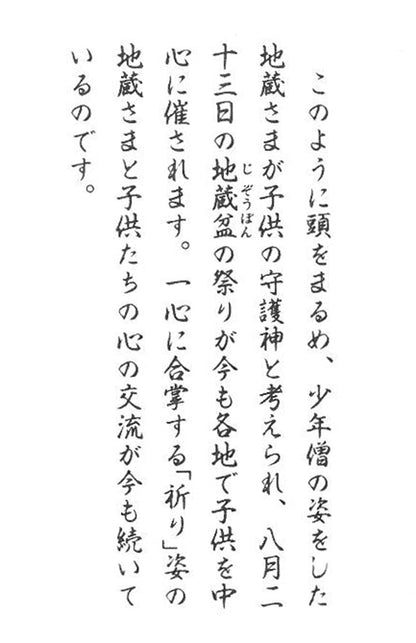 このように頭をまるめ、少年僧の姿をした
地蔵さまが子供の守護神と考えられ、八月二
十三日の地蔵盆の祭りが今も各地で子供を中
じぞうぼん
心に催されます。一心に合掌する「祈り」姿の
地蔵さまと子供たちの心の交流が今も続いて
いるのです。